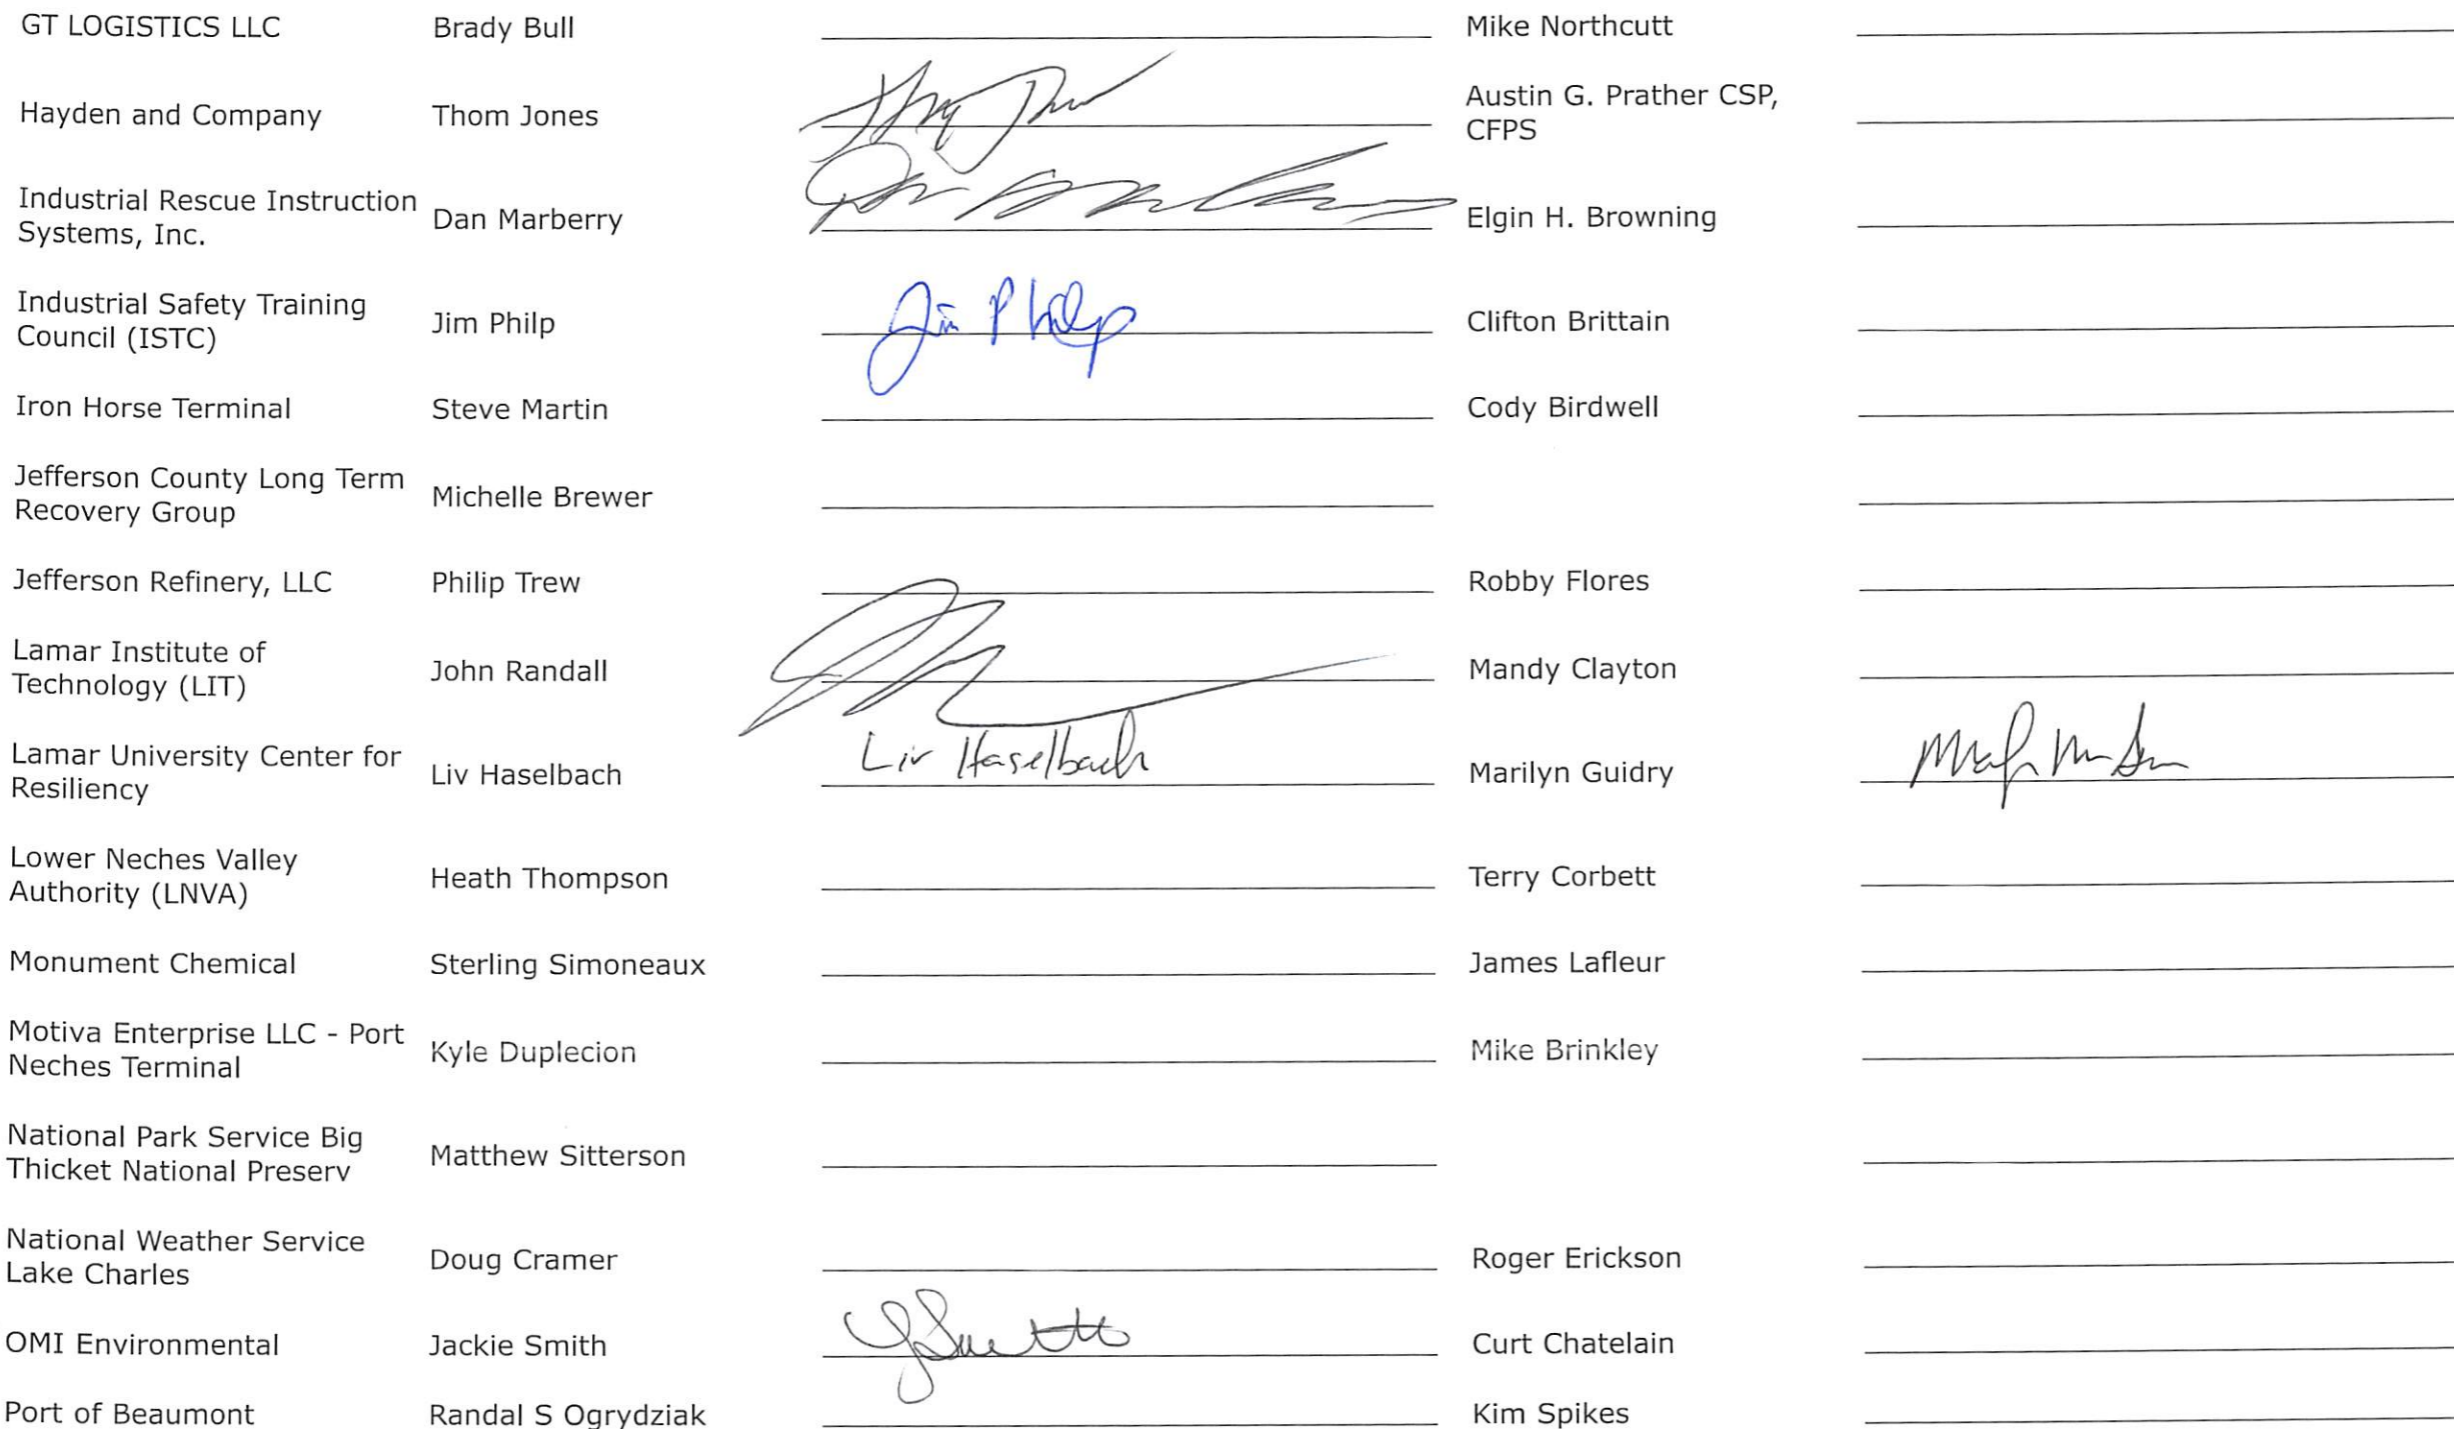 GT LOGISTICS LLC Brady Bull Mike Northcutt
Hayden and Company Thom Jones Austin G. Prather CSP,
CFPS
Industrial Rescue Instruction
Systems, Inc. Dan Marberry Elgin H. Browning
Industrial Safety Training
Council (ISTC) Jim Philp Jim Philp Clifton Brittain
Iron Horse Terminal Steve Martin Cody Birdwell
Jefferson County Long Term
Recovery Group Michelle Brewer
Jefferson Refinery, LLC Philip Trew Robby Flores
Lamar Institute of
Technology (LIT) John Randall Mandy Clayton
Lamar University Center for
Resiliency Liv Haselbach Liv Haselbach Marilyn Guidry
Lower Neches Valley
Authority (LNVA) Heath Thompson Terry Corbett
Monument Chemical Sterling Simoneaux James Lafleur
Motiva Enterprise LLC - Port
Neches Terminal Kyle Duplecion Mike Brinkley
National Park Service Big
Thicket National Preserv Matthew Sitterson
National Weather Service
Lake Charles Doug Cramer Roger Erickson
OMI Environmental Jackie Smith Curt Chatelain
Port of Beaumont Randal S Ogrydziak Kim Spikes